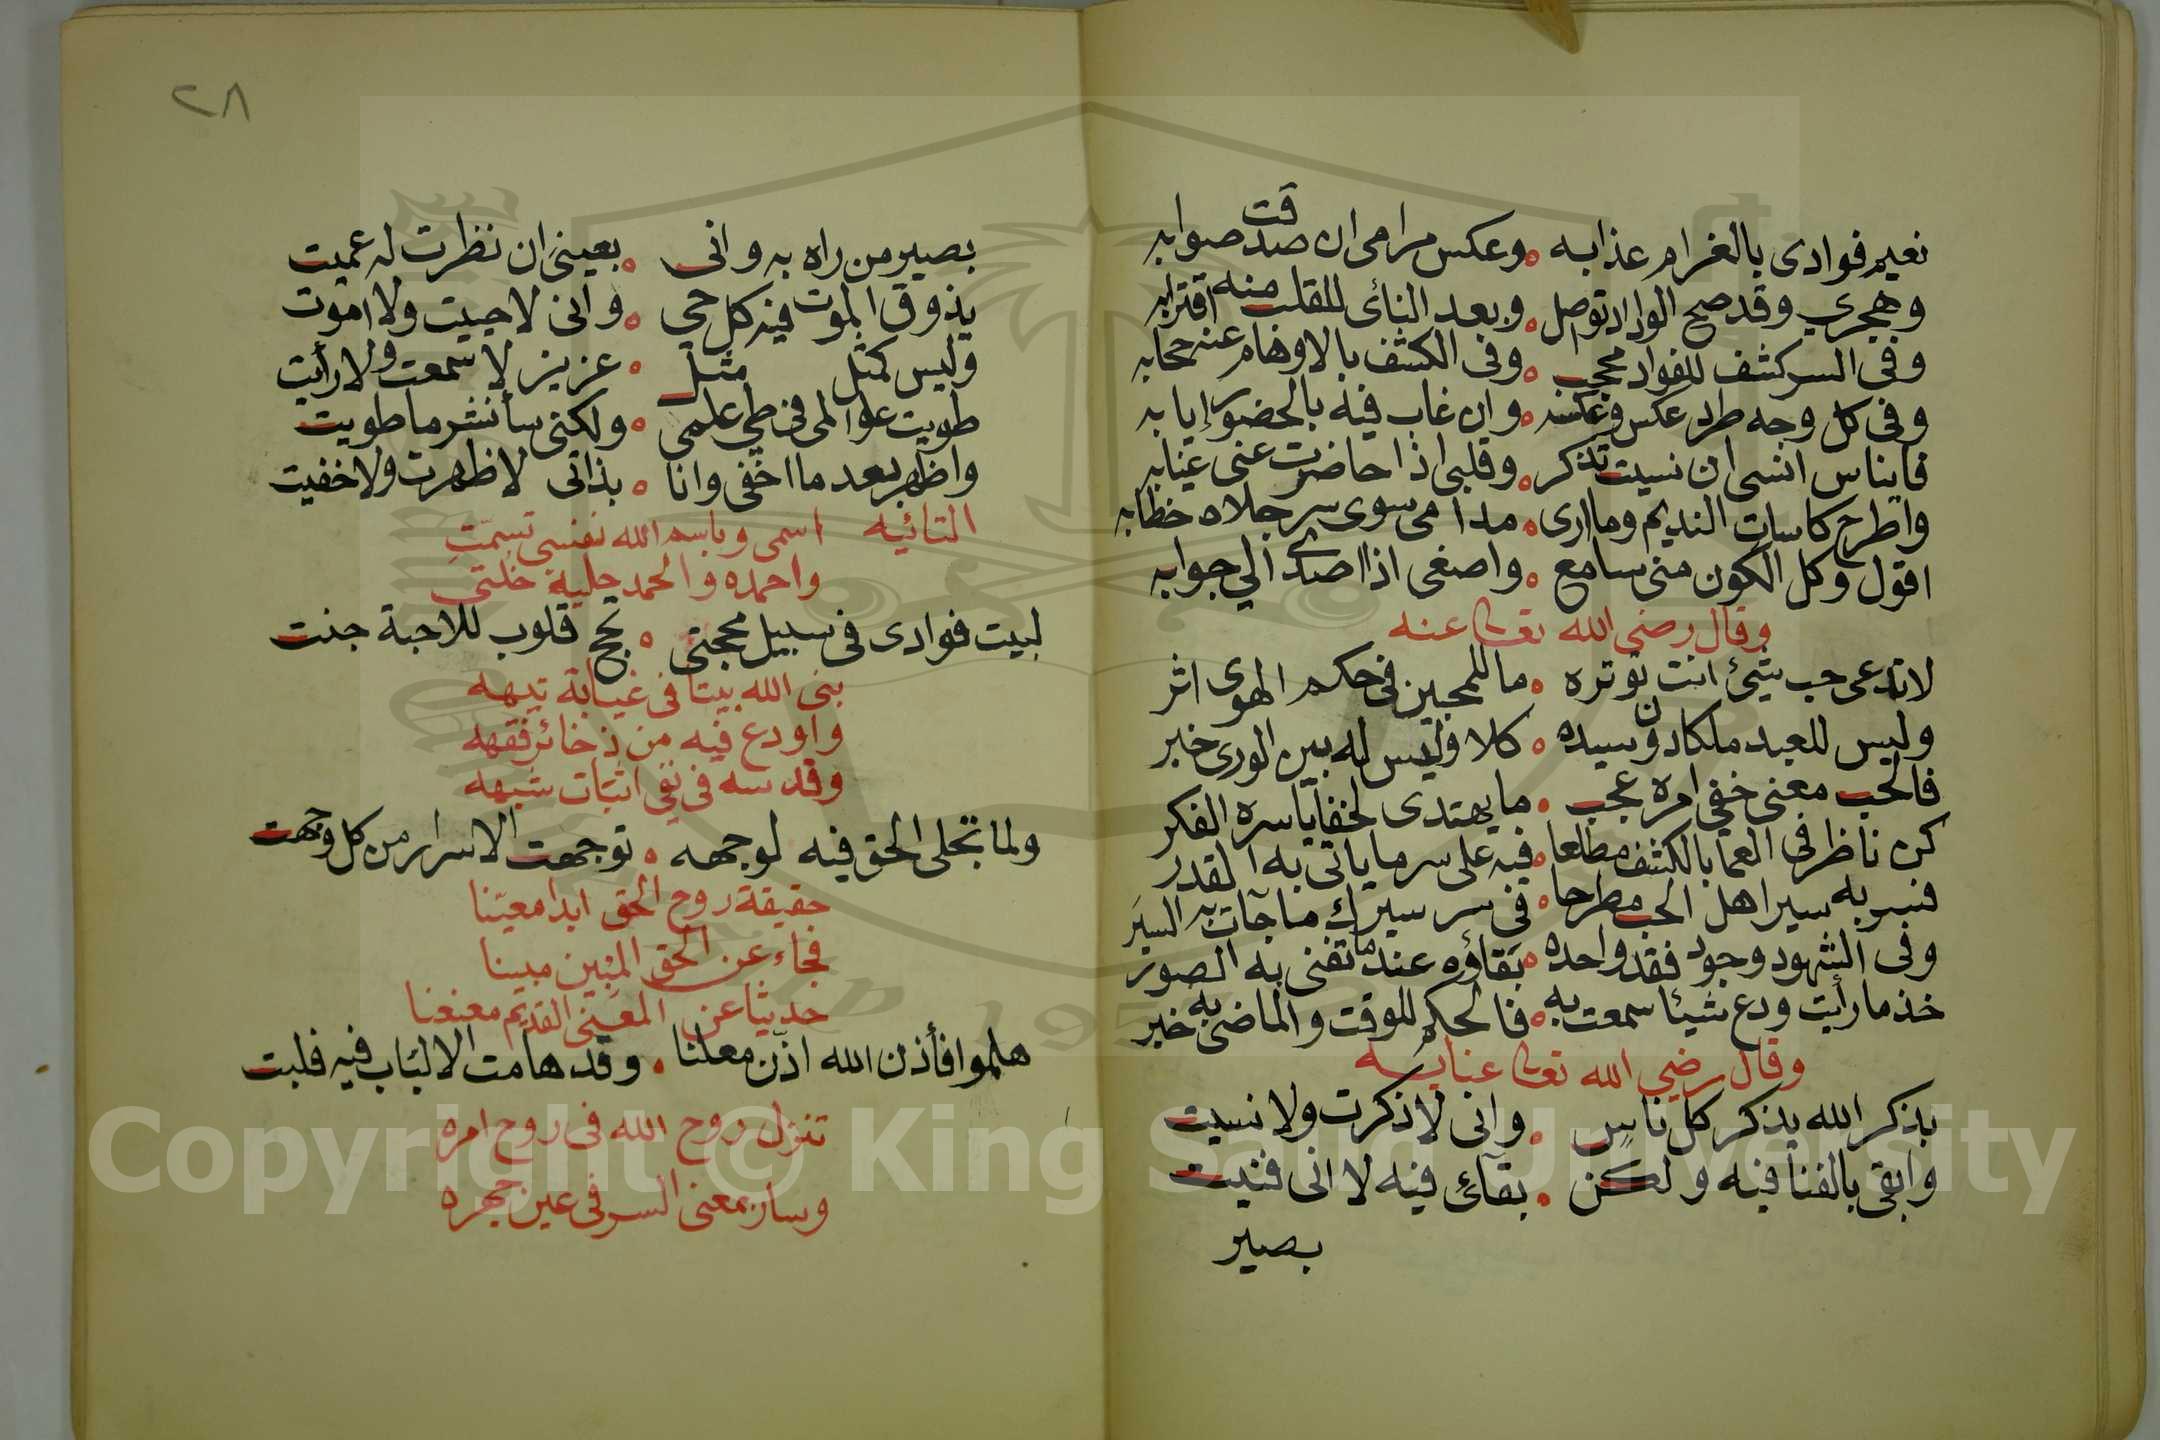 نعيم فوادى بالغرام عذابه ٥ وعكس مرامى ان صدقت صوابه
وهجري وقد صح الوداد تواصل ٥ وبعد النائى للقلب منه اقترابه
وفى السر كشف للفواد محجب ٥ وفى الكشف بالاوهام عنه حجابه
وفى كل وجه طرد عكس وعكسه ٥ وان غاب فيه بالحضور إيابه
فايناس انسى ان نسيت تذكر ٥ وقلبى اذا حاضرت عنى غيابه
واطرح كاسات النديم وما ارى ٥ مدامى سوى سر جلاه خطابه
اقول وكل الكون منى سامع ٥ واصغى اذا اصدى الي جوابه
وقال رضى الله تعالى عنه
لا تدعى حب شئ انت توتره ٥ ما للمحبين فى حكم الهوى اثر
وليس للعبد ملكا دون سيده ٥ كلا وليس له بين الورى خبر
فالحب معنى خفي امره عجب ٥ ما يهتدى لخفايا سره الفكر
كن ناظر فى العما بالكشف مطلعا ٥ فيه على سر ما ياتى به القدر
فسر به سير اهل الحب مطرحا ٥ فى سر سيرك ما جآت به السير
وفى الشهود وجود فقد واحده ٥ بقاؤه عند ما تفنى به الصور
خذ ما رأيت ودع شيئا سمعت به ٥ فالحكم للوقت والماضى به خبر
وقال رضي الله تعالى عنا به
بذكر الله يذكر كل ناس ٥ وانى لا ذكرت ولا نسيت
وابقى بالفنا فيه ولكن ٥ بقآئ فيه لا انى فنيت
بصير
٢٨
بصير من راه به وانى ٥ بعينى ان نظرت له عميت
يذوق الموت فيه كل حي ٥ وانى لا حييت ولا اموت
وليس كمثل مثل ٥ عزيز لا سمعت ولا رأيت
طويت عوالمى فى طي علمى ٥ ولكنى سأنشر ما طويت
واظهر بعد ما اخفى وانا ٥ بذاتى لا ظهرت ولا خفيت
التائيه اسمى وباسم الله نفسى تسمّتِ
واحمده والحمد حلية خلتى
لبيت فوادى فى سبيل محجتى ٥ تحج قلوب للاحبة جنت
بنى الله بيتا فى غيابة تيهه
واودع فيه من ذخائر فقهه
وقدسه فى نفي اثبات شبهه
ولما تجلى الحق فيه لوجهه ٥ توجهت الاسرار من كل وجهت
حقيقة روح الحق ابدا معيّنا
فجاء عن الحق المبين مبينا
حديثا عن المعنى القديم معنعنا
هلموا فأذن الله اذّن معلنا ٥ وقد هامت الالباب فيه فلبت
تنزل روح الله فى روح امره
وسار بمعنى السر فى عين جهره
Copyright © King Saud University
1957